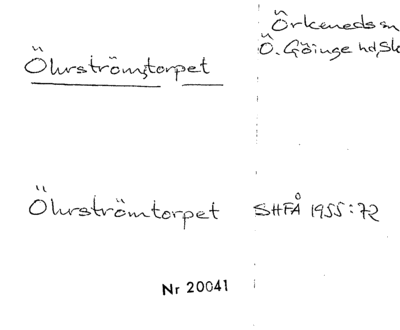 Örkeneds sn
Ö. Göinge hd, Sk
Öhrströmstorpet
Öhrströmtorpet SHFÅ 1955:72
Nr 20041